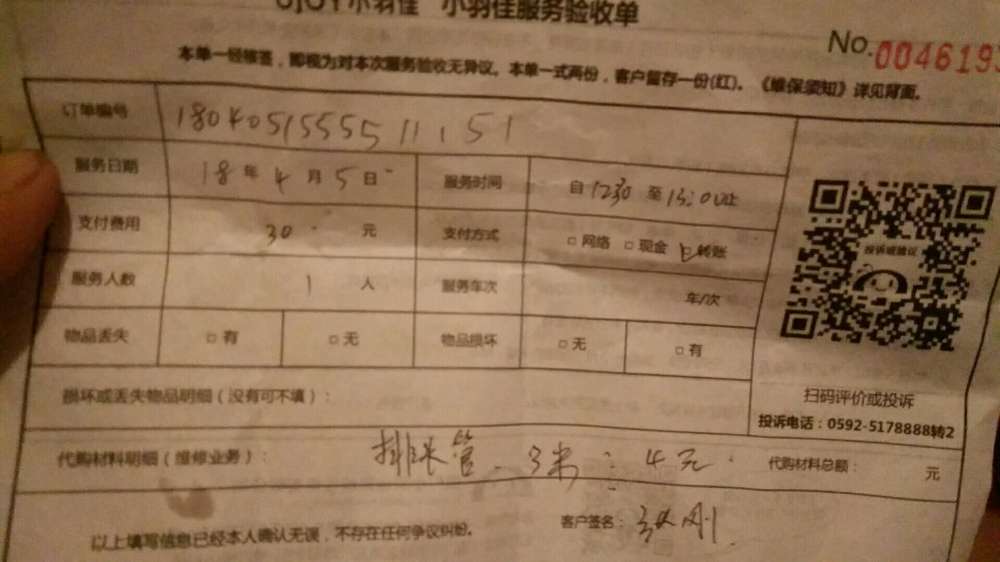 小羽佳 小羽佳服务验收单
No.0046193
本单一经核签,即视为对本次服务验收无异议。本单一式两份,客户留存一份(红)。《维保须知》详见背面。
订单编号 180405155551151
服务日期 18年4月5日 服务时间 自1230至15:0止
支付费用 30 元 支付方式 □网络 □现金 □转账
服务人数 1 人 服务车次 车/次
物品丢失 □有 □无 物品损坏 □无 □有
投诉或建议
扫码评价或投诉
投诉电话:0592-5178888转2
损坏或丢失物品明细(没有可不填):
代购材料明细(维修业务): 排水管、3米:4元 代购材料总额: 元
以上填写信息已经本人确认无误,不存在任何争议纠纷。 客户签名:刚